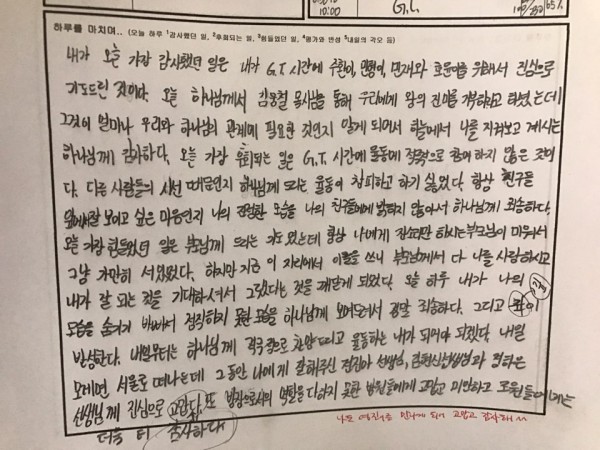 10:00 G.T.
하루를 마치며.. (오늘 하루 ¹감사했던 일, ²후회되는 일, ³힘들었던 일, ⁴평가와 반성 ⁵내일의 각오 등)
내가 오늘 가장 감사했던 일은 내가 G.T 시간에 위해서 진심으로
기도드린 것이다. 오늘 하나님께서 목사님을 통해 우리에게 왕의 진미를 하셨는데
그것이 얼마나 우리와 하나님의 관계에 필요한 것인지 알게 되어서 하늘에서 나를 지켜보고 계시는
하나님께 감사하다. 오늘 가장 후회되는 일은 G.T. 시간에 율동에 적극적으로 참여 하지 않은 것이
다. 다른 사람들의 시선 때문인지 하나님께 드리는 율동이 창피하고 하기 싫었다. 항상 친구들
앞에서 잘 보이고 싶은 마음인지 나의 모습을 나의 친구들에게 않아서 하나님께 죄송하다.
오늘 가장 힘들었던 일은 부모님께 드리는 기도 였는데 항상 나에게 잔소리만 하시는 부모님이 미워서
그냥 가만히 서있었다. 하지만 지금 이 자리에서 이 글을 쓰니 부모님께서 다 나를 사랑하시고
내가 잘 되는 것을 기대하셔서 그랬다는 것을 깨닫게 되었다. 오늘 하루 내가 나의
모습을 숨기기 바빠서 정직하지 못한 모습을 하나님께 보여드려서 정말 죄송하다. 그리고 깊이
반성한다. 내일부터는 하나님께 적극적으로 찬양드리고 율동하는 내가 되어야 되겠다. 내일
모레면 서울로 떠나는데 그 동안 나에게 잘해주신 선생님, 선생님과
선생님께 진심으로 고맙다. 또 방장으로서의 역할을 다하지 못한 방원들에게 고맙고 미안하고 조원들에게는
더욱 더 감사하다.
나도 만나게 되어 고맙고 감사해 ^^